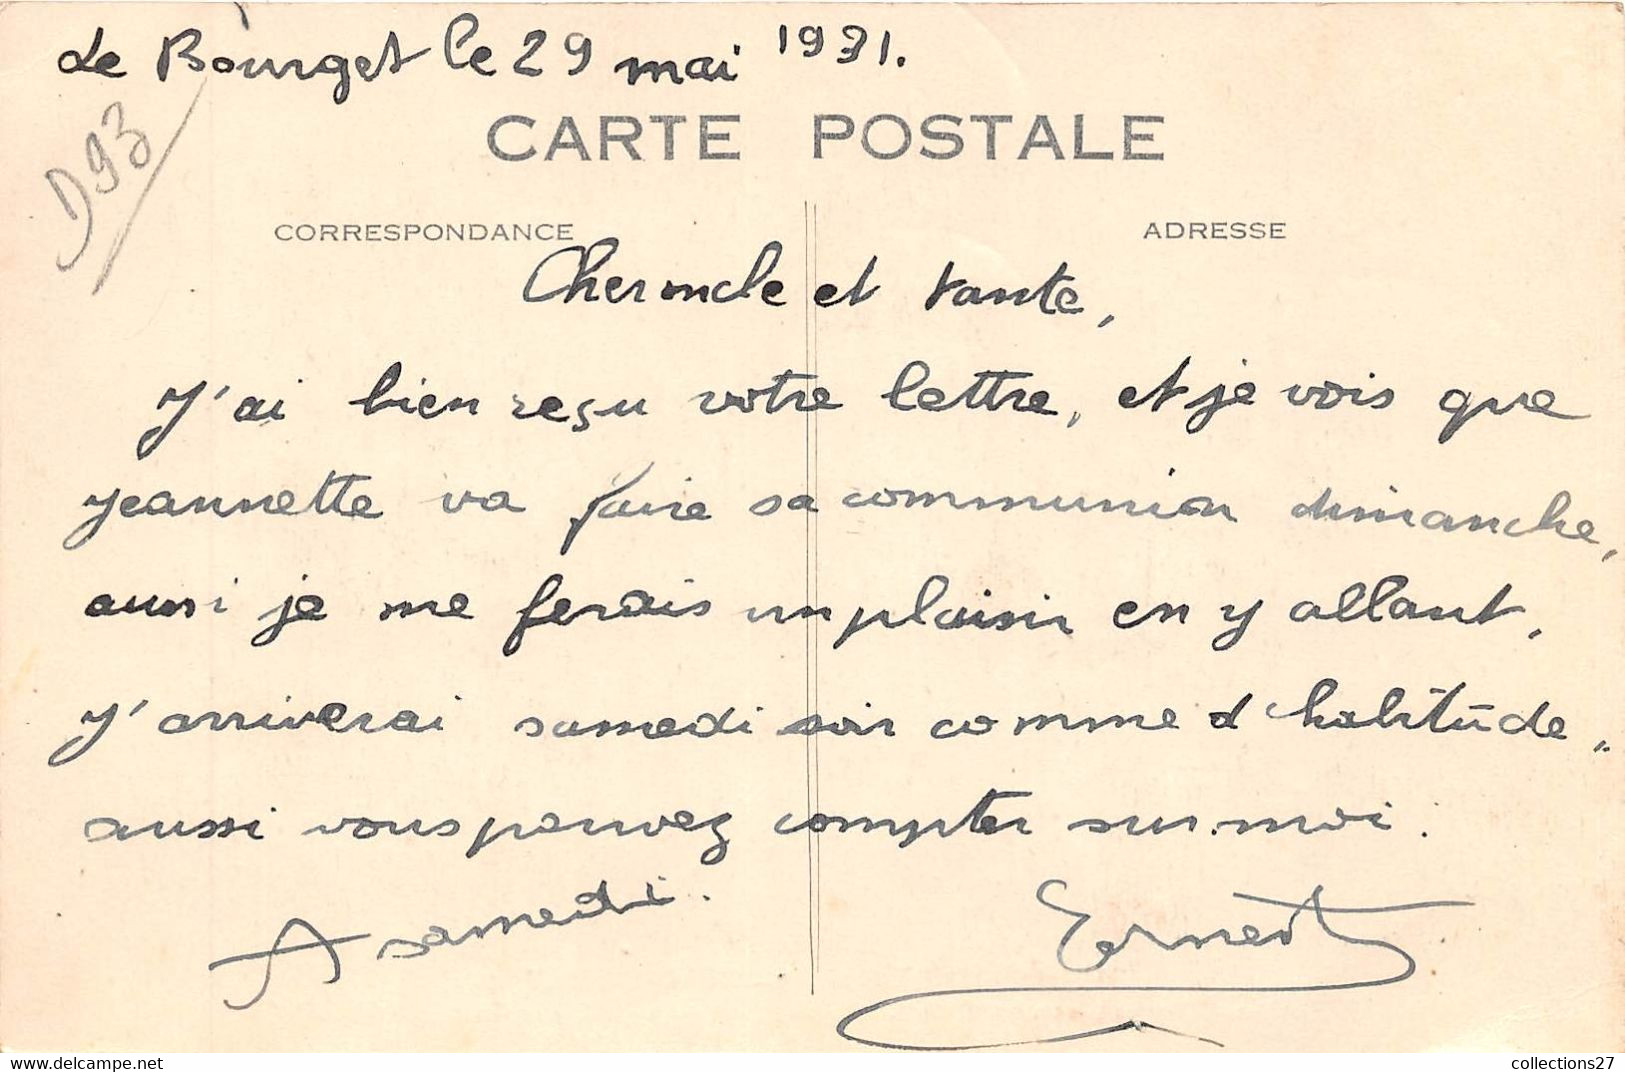 Le Bourget le 29 mai 1931.
D93
CARTE POSTALE
CORRESPONDANCE
ADRESSE
Cher oncle et tante,
J'ai bien reçu votre lettre, et je vois que
Jeannette va faire sa communion dimanche,
aussi je me ferais un plaisir en y allant.
J'arriverai samedi soir comme d'habitude.
aussi vous pouvez compter sur moi.
A samedi.
Ernest
delcampe.net
collections27